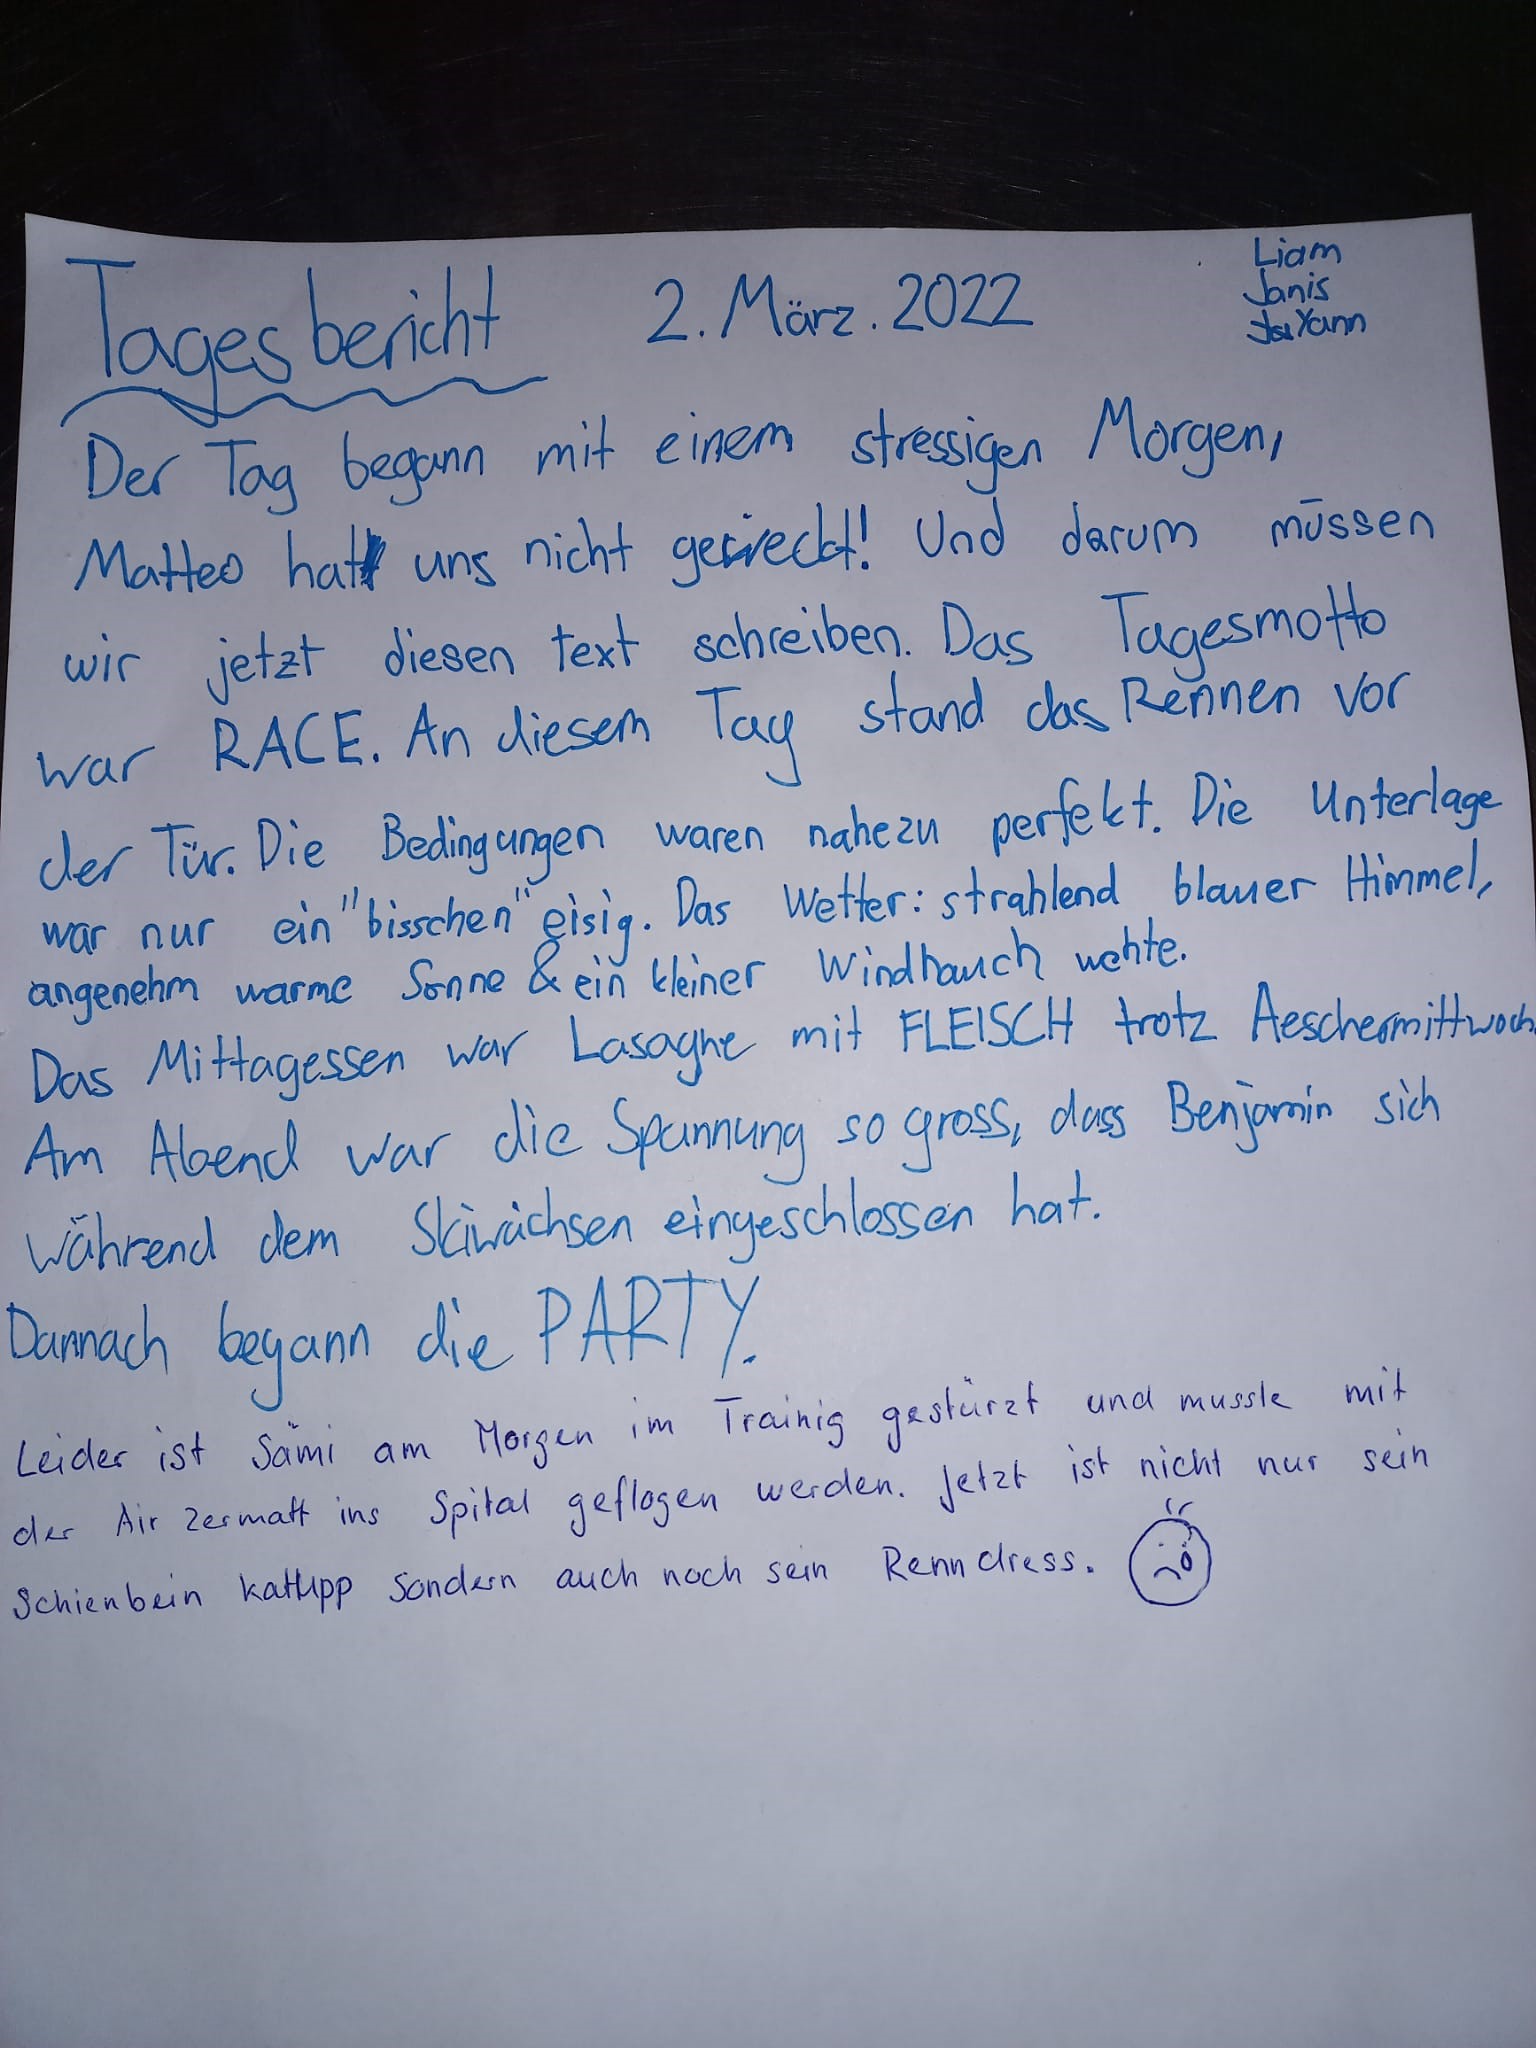 Tagesbericht 2. März. 2022
Liam
Janis
Yann
Der Tag begann mit einem stressigen Morgen,
Matteo hat uns nicht geweckt! Und darum müssen
wir jetzt diesen text schreiben. Das Tagesmotto
war RACE. An diesem Tag stand das Rennen vor
der Tür. Die Bedingungen waren nahezu perfekt. Die Unterlage
war nur ein "bisschen" eisig. Das Wetter: strahlend blauer Himmel,
angenehm warme Sonne & ein kleiner Windhauch wehte.
Das Mittagessen war Lasagne mit FLEISCH trotz Aeschermittwoch.
Am Abend war die Spannung so gross, dass Benjamin sich
während dem Skiwächsen eingeschlossen hat.
Dannach begann die PARTY.
Leider ist Sämi am Morgen im Trainig gestürzt und musste mit
der Air Zermatt ins Spital geflogen werden. Jetzt ist nicht nur sein
Schienbein kattupp sondern auch noch sein Renndress.